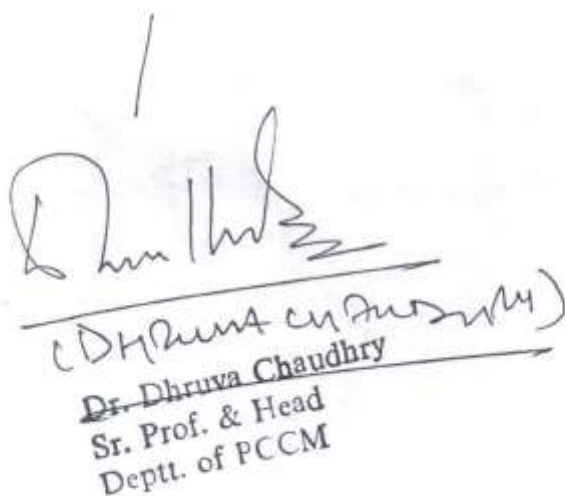 (DHRUVA CHAUDHRY)
Dr. Dhruva Chaudhry
Sr. Prof. & Head
Deptt. of PCCM